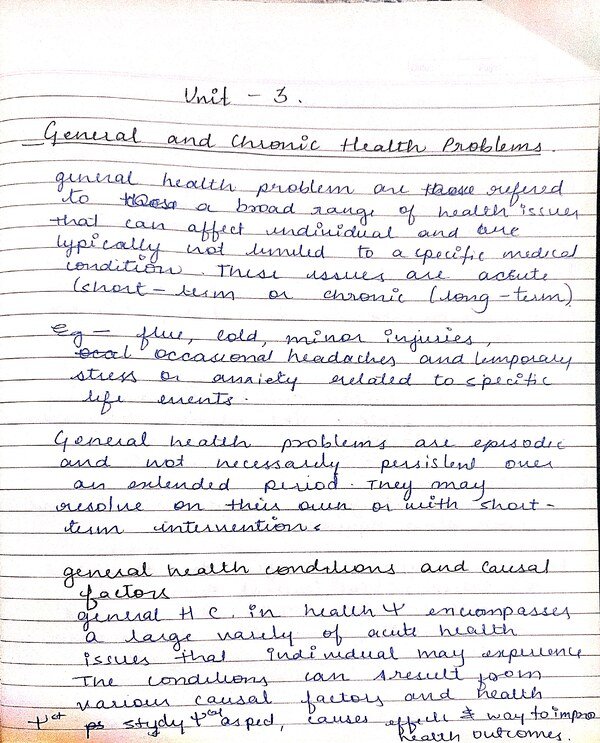 Unit - 3.
General and Chronic Health Problems.
general health problem are refered
to a broad range of health issues
that can affect individual and are
typically not limited to a specific medical
condition. These issues are acute
(short-term or chronic (long-term)
eg - flue, cold, minor injuries,
occasional headaches and temporary
stress or anxiety related to specific
life events.
General health problems are episodic
and not necessarily persistent over
an extended period. They may
resolve on their own or with short-
term intervention.
general health conditions and causal
factors
general H C. in health Ψ encompasses
a large variety of acute health
issues that individual may experience
The conditions can result from
various causal factors and health
Ψst study Ψcal asped, causes effects & way to impro
health outcomes.